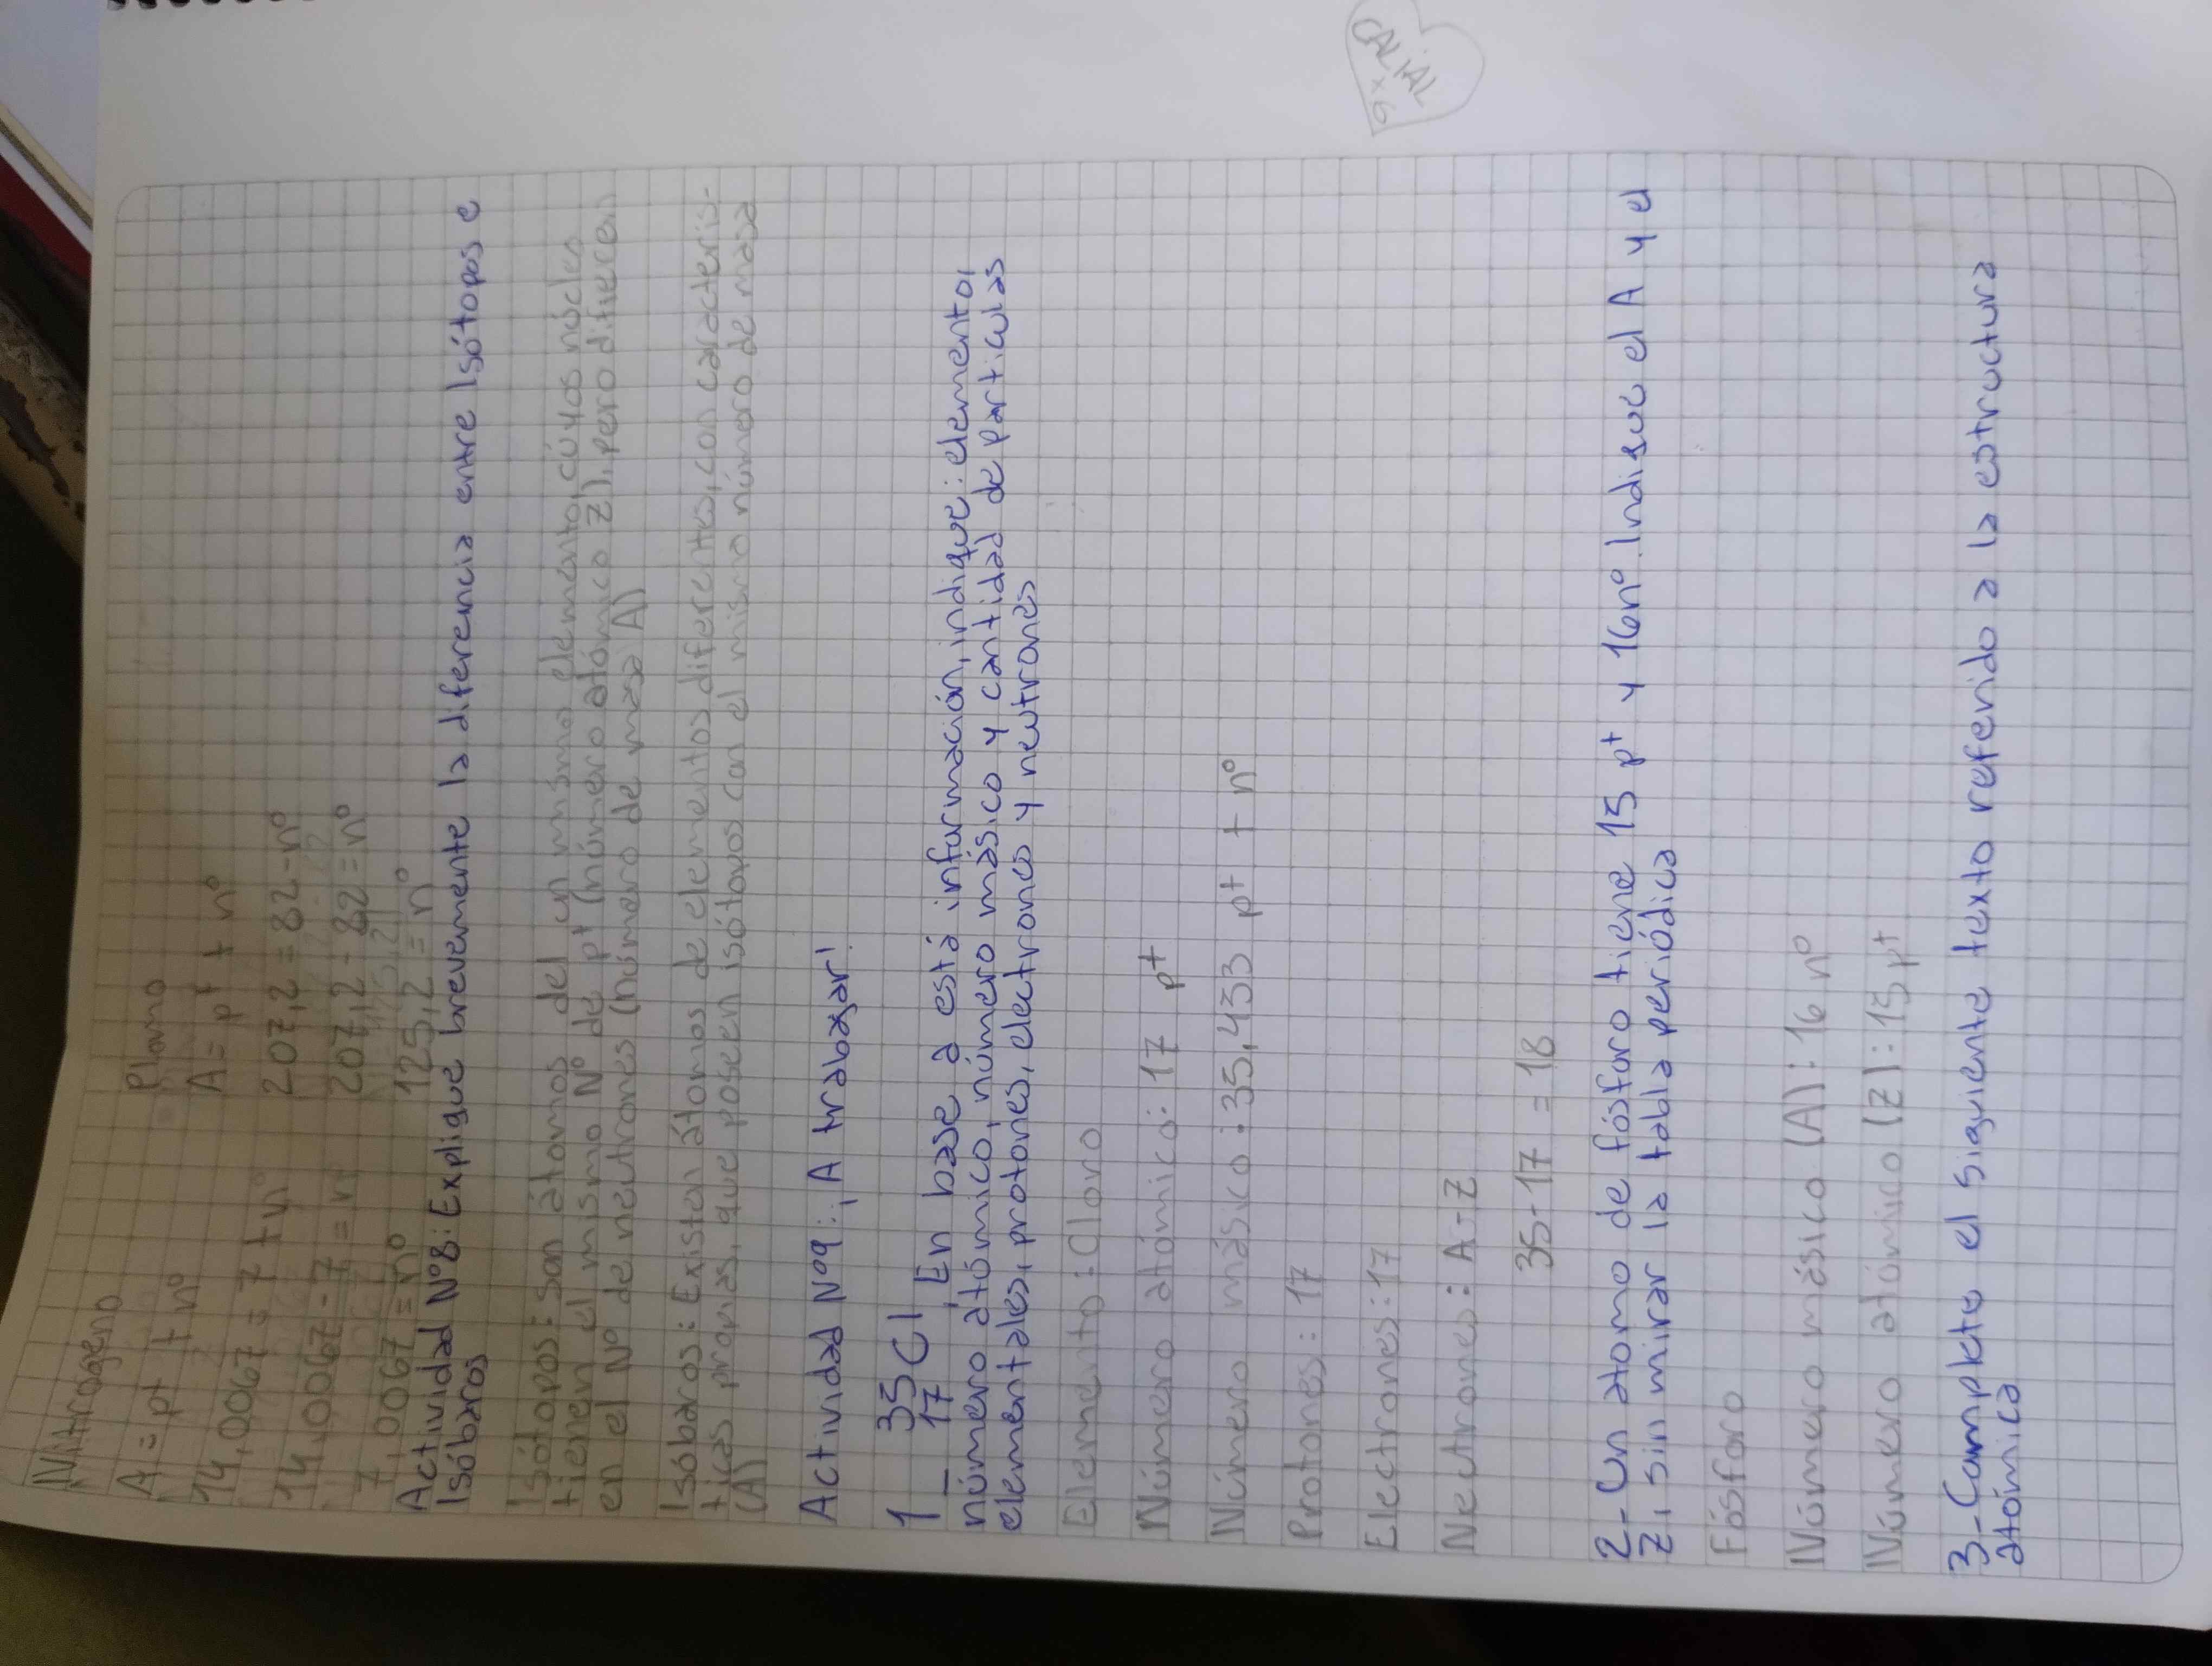 Nitrógeno
A = p+ + n°
14,0067 = 7 + n°
14,0067 - 7 = n°
7,0067 = n°
Plomo
A = p+ + n°
207,2 = 82 - n°
207,2 - 82 = n°
125,2 = n°
Actividad N°8: Explique brevemente la diferencia entre Isótopos e
Isóbaros
Isótopos: Son átomos del un mismo elemento, cúyos núcleo
tienen el mismo N° de p+ (número atómico Z), pero difieren
en el N° de neutrones (número de masa A)
Isóbaros: Existen átomos de elementos diferentes, con caracterís-
ticas propias, que poseen isótopos con el mismo número de masa
(A)
Actividad N°9: ¡A trabajar!
1_ 35 Cl, En base a está información, indique: elemento,
17
número atómico, número másico y cantidad de partículas
elementales, protones, electrones y neutrones
Elemento: Cloro
Número atómico: 17 p+
Número másico: 35,453 p+ + n°
Protones: 17
Electrones: 17
Neutrones: A - Z
35 - 17 = 18
2- Un átomo de fósforo tiene 15 p+ y 16n°. Indique el A y el
Z, sin mirar la tabla periódica
Fósforo
Número másico (A): 16 n°
Número atómico (Z): 15 p+
3- Complete el siguiente texto referido a la estructura
atómica